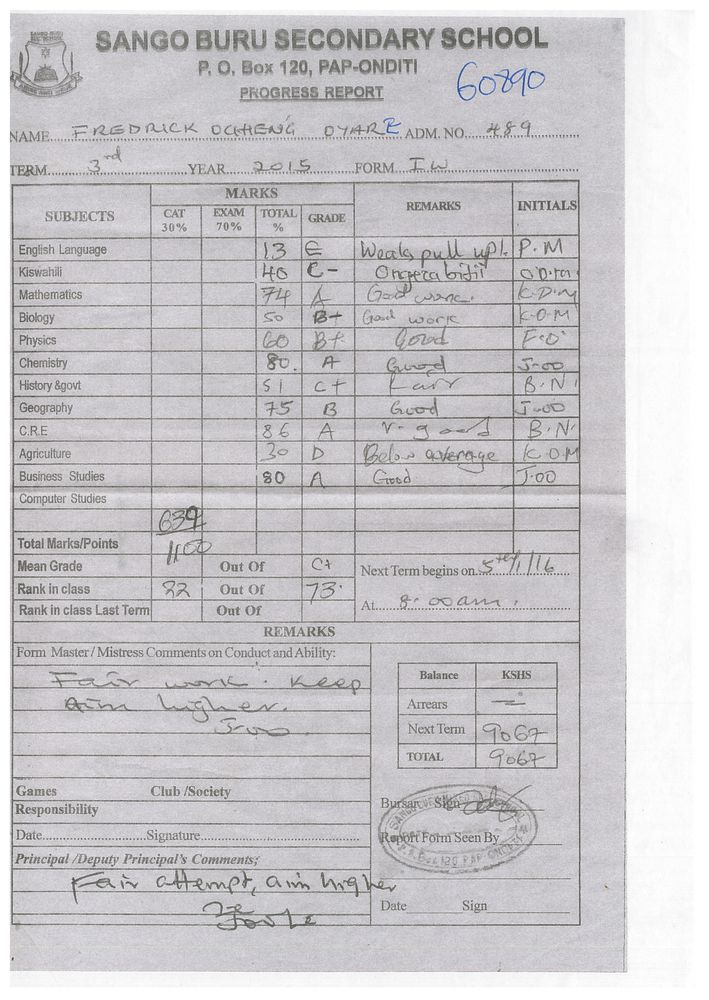 SANGO BURU SECONDARY SCHOOL
P. O. Box 120, PAP-ONDITI
60890
PROGRESS REPORT
NAME FREDRICK OCHENG OYARE ADM. NO. 489
TERM 3rd YEAR 2015 FORM I W
MARKS
SUBJECTS CAT 30% EXAM 70% TOTAL % GRADE REMARKS INITIALS
English Language 13 E Weak, pull up! P.M
Kiswahili 40 C- Ongeza bidii
Mathematics 74 A Good work. K.D.M
Biology 50 B+ Good work K.O.M
Physics 60 B+ Good F.O
Chemistry 80. A Good J-OO
History &govt 51 C+ Fair B.N
Geography 75 B Good J-OO
C.R.E 86 A V-good B.N
Agriculture 30 D Below average K.O.M
Business Studies 80 A Good J.OO
Computer Studies
639
Total Marks/Points 1100
Mean Grade Out Of C+ Next Term begins on 5th/1/16
Rank in class 22 Out Of 73
Rank in class Last Term Out Of At 8.00am.
REMARKS
Form Master / Mistress Comments on Conduct and Ability:
Fair work. Keep
aim higher.
J-oo.
Balance KSHS
Arrears —
Next Term 9067
TOTAL 9067
Games Club /Society
Responsibility
Bursar Sign
Date Signature
Report Form Seen By
Principal /Deputy Principal's Comments;
Fair attempt, aim higher
Date Sign